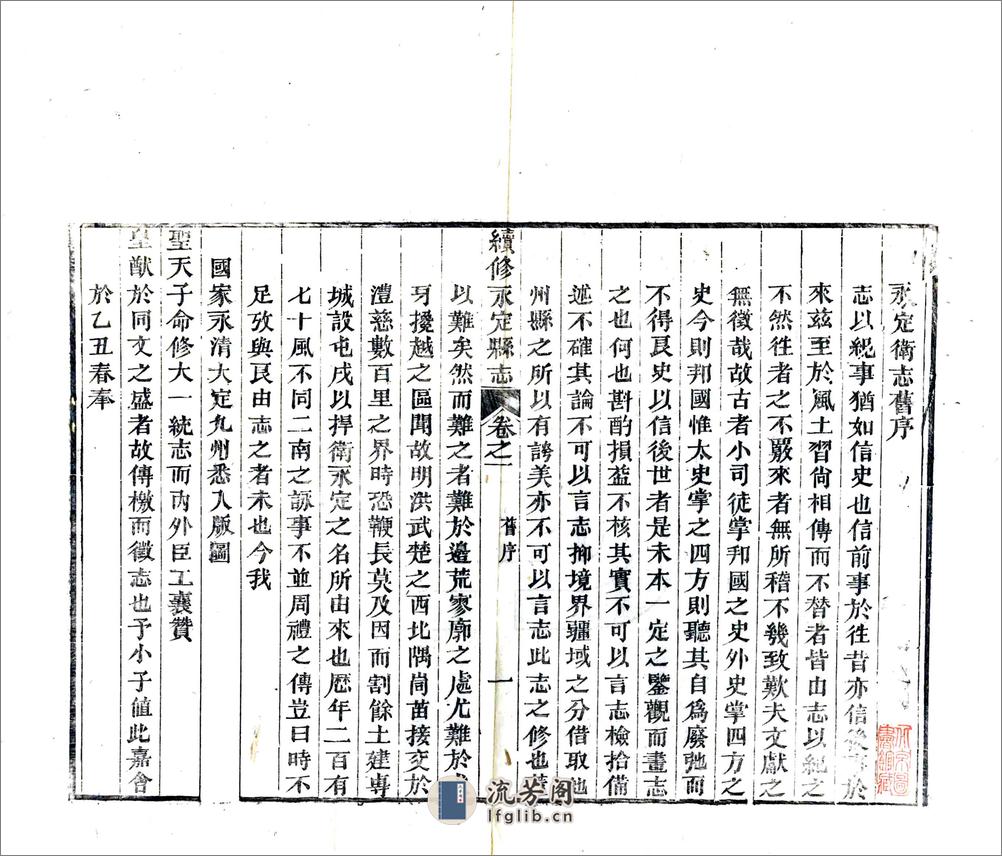 永定衛志舊序
志以紀事猶如信史也信前事於往昔亦信後事於
來兹至於風土習尙相傳而不替者皆由志以紀之
不然往者之不覈來者無所稽不幾致歎夫文獻之
無徵哉故古者小司徒掌邦國之史外史掌四方之
史今則邦國惟太史掌之四方則聽其自爲廢弛而
不得良史以信後世者是未本一定之鑒觀而畫志
之也何也斟酌損益不核其實不可以言志檢拾備
述不確其論不可以言志抑境界疆域之分借取他
州縣之所以有誇美亦不可以言志此志之修也
續修永定縣志
卷之一
舊序
一
以難矣然而難之者難於邉荒寥廓之處尤難於
牙擾越之區聞故明洪武楚之西北隅崗苗接交於
澧慈數百里之界時恐鞭長莫及因而割餘土建專
城設屯戍以捍衛永定之名所由來也歷年二百有
七十風不同二南之詠事不並周禮之傳豈曰時不
足攷與良由志之者未也今我
國家永清大定九州悉入版圖
聖天子命修大一統志而內外臣工襄贊
皇猷於同文之盛者故傳檄而徵志也予小子值此嘉會
於乙丑春奉
流芳阁
lfglib.cn